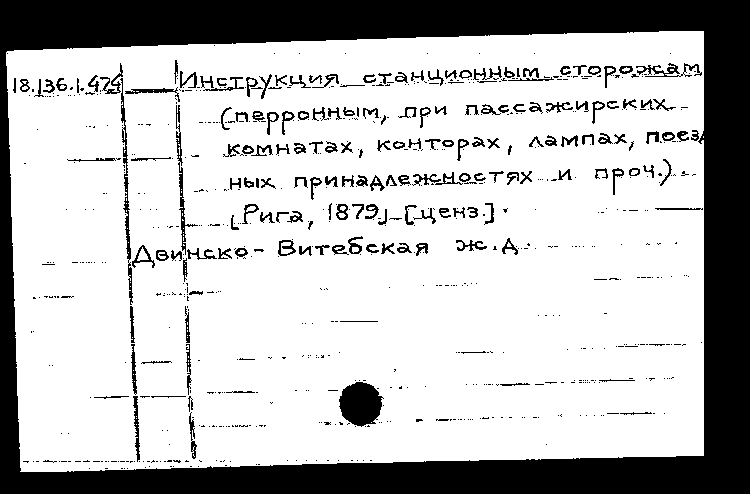 18.136.1.474 Инструкция станционным сторожам
(перронным, при пассажирских
комнатах, конторах, лампах, поезд
ных принадлежностях и проч.).
[Рига, 1879] [ценз.].
Двинско-Витебская ж.д.